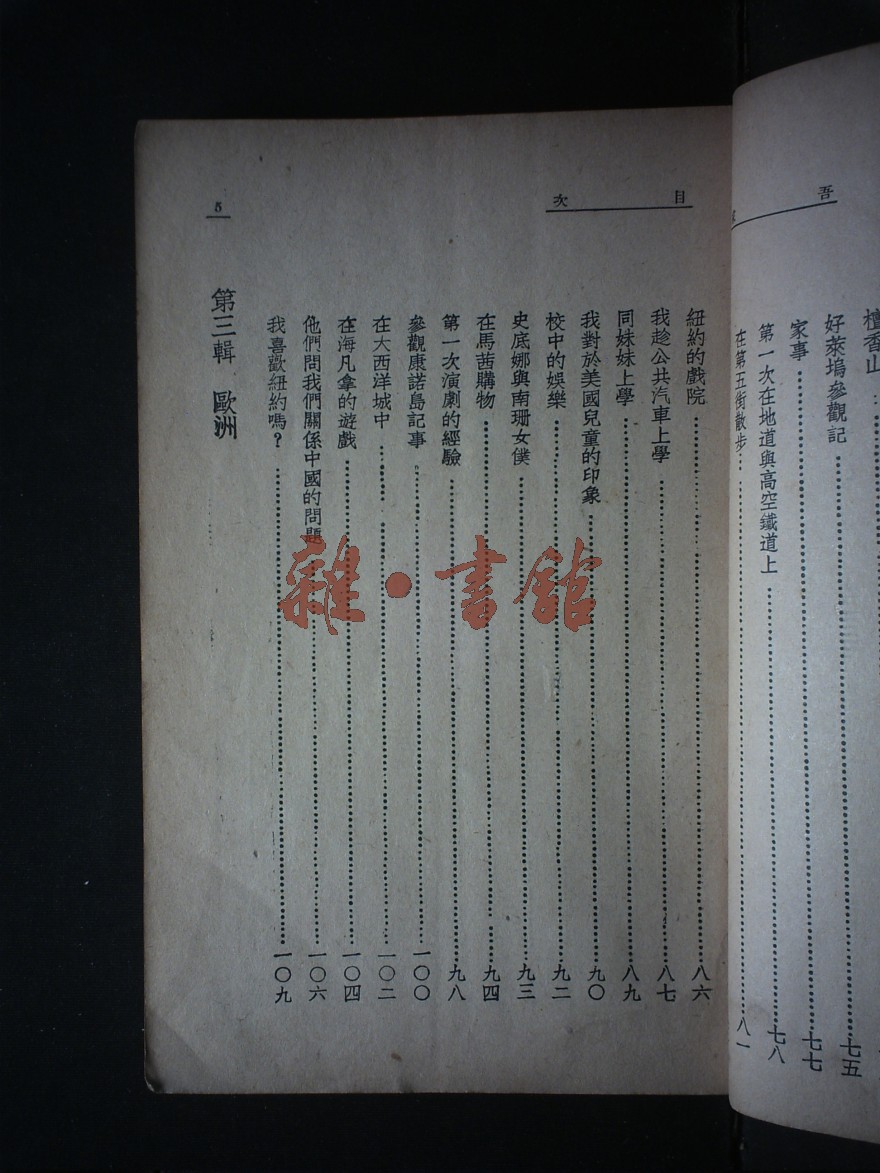 吾
檀香山
好萊塢參觀記 七五
家事 七七
第一次在地道與高空鐵道上 七八
在第五街散步 八一
目次
紐約的戲院 八六
我趁公共汽車上學 八七
同妹妹上學 八九
我對於美國兒童的印象 九〇
校中的娛樂 九二
史底娜與南珊女僕 九三
在馬茜購物 九四
第一次演劇的經驗 九八
參觀康諾島記事 一〇〇
在大西洋城中 一〇二
在海凡拿的遊戲 一〇四
他們問我們關係中國的問題 一〇六
我喜歡紐約嗎？ 一〇九
第三輯 歐洲
5
雜·書館